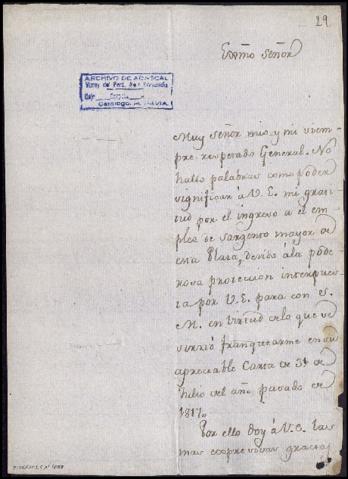 29
Exsmo Señor
ARCHIVO DE ABASCAL
Virrey del Perú
Catálogo
Muy Señor mio, y mi siem-
pre respetado General. No
hallo palabras como poder
significar á V. E. mi grati-
tud por el ingreso a el em
pleo de Sargento mayor de
esta Plaza, devido á la pode
rosa proteccion interpues
ta por V. E. para con S.
M. en virtud de lo que se
sirvió franquearme en su
apreciable Carta de 31 de
Julio del año pasado de
1817.
Por ello doy á V. E. las
mas expresivas gracias